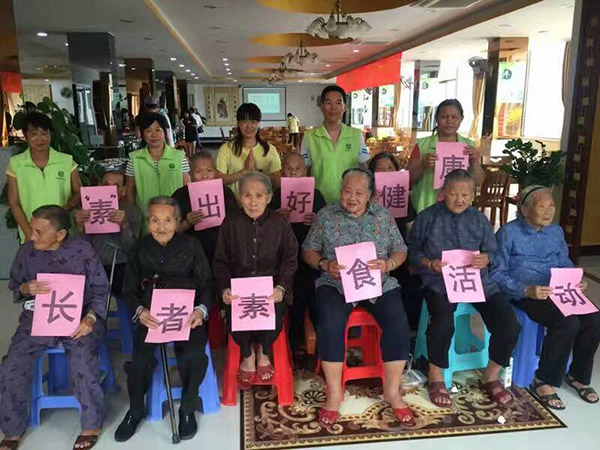 “素”出好健康
长者素食活动